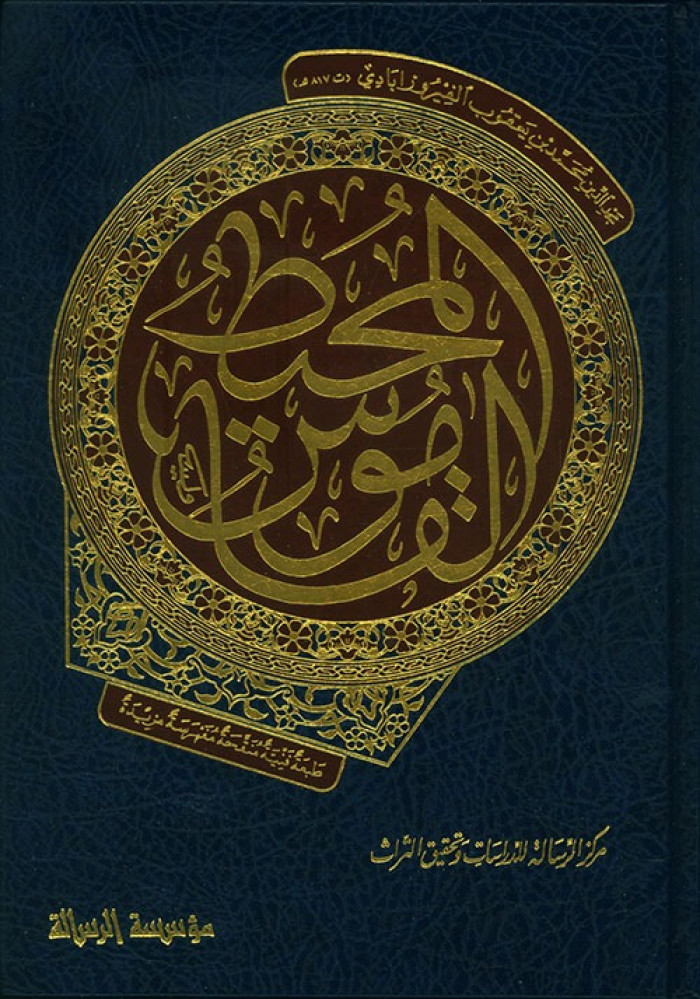 مجد الدين محمد بن يعقوب الفيروزآبادي (ت ٨١٧ هـ)
القاموس
المحيط
طبعة فنية منقحة مفهرسة مزيدة
مركز الرسالة للدراسات وتحقيق التراث
مؤسسة الرسالة